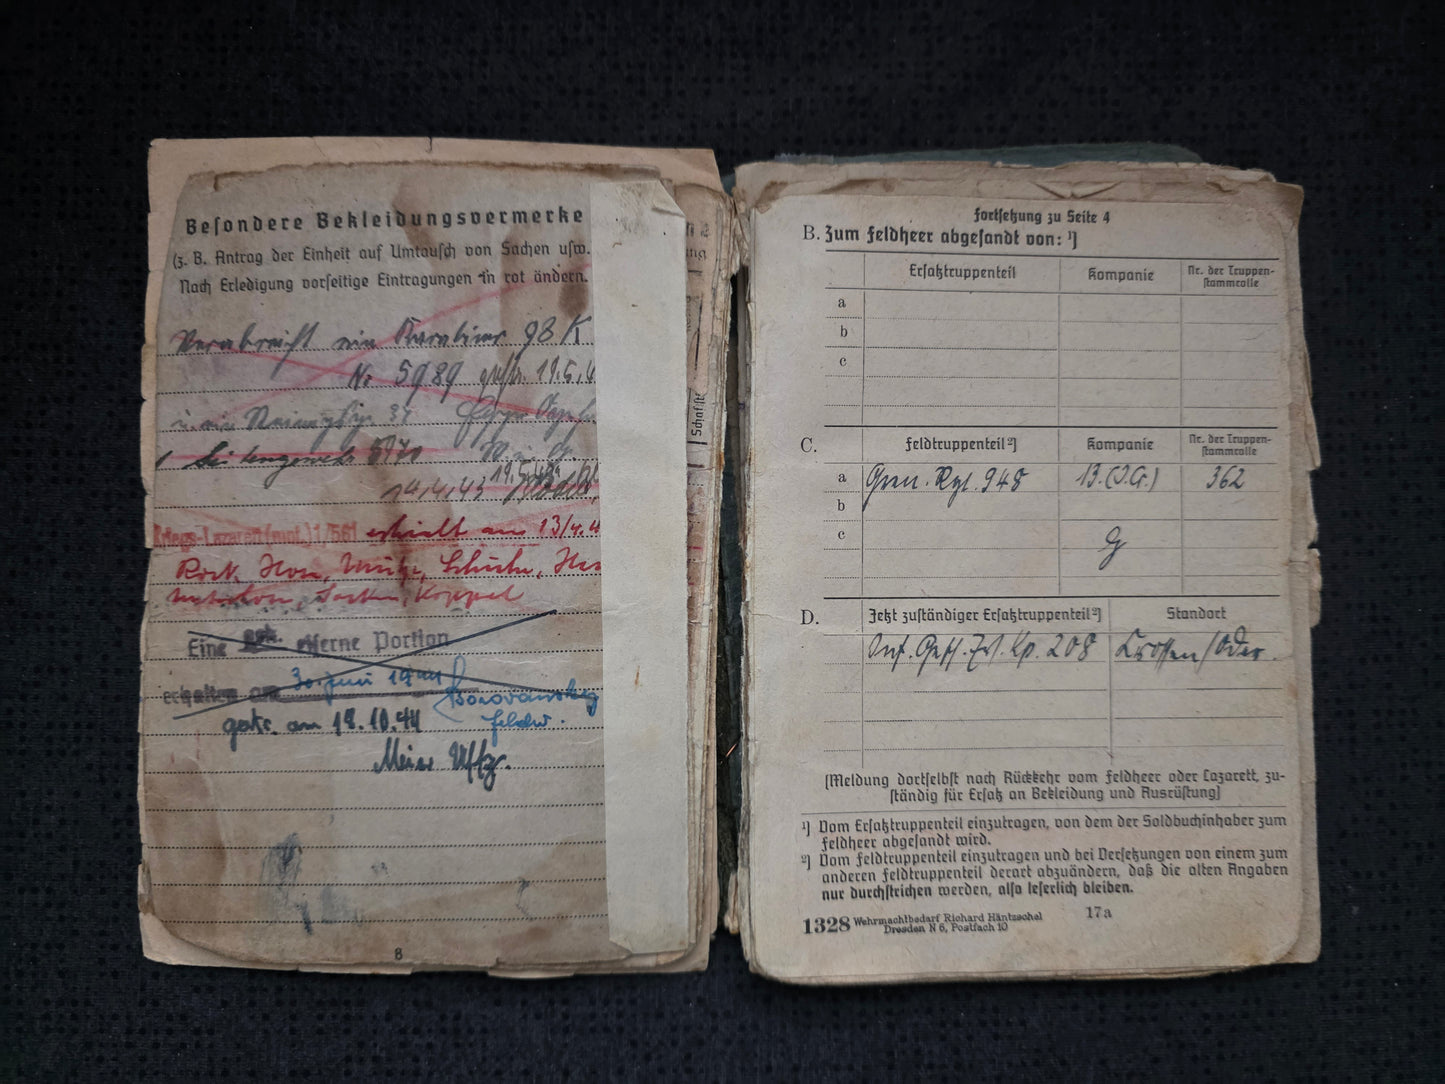 Besondere Bekleidungsvermerke
(z. B. Antrag der Einheit auf Umtausch von Sachen usw.
Nach Erledigung vorseitige Eintragungen in rot ändern.
Verabreicht ein Karabiner 98 K
Nr 5989 19.5.4
ein 34
Seitengewehr
19.5.43
14.4.43
Kriegs-Lazarett (mot.) 1/561 erhielt am 13/4.4
Rock, Hose, Mütze, Schuhe,
Socken, Koppel
Eine eiserne Portion
erhalten am 30. Juni 1944
Feldw.
am 18.10.44
Meier Uffz.
8
Schaftst
Fortsetzung zu Seite 4
B. Zum Feldheer abgesandt von: ¹]
Ersatztruppenteil Kompanie Nr. der Truppen-
stammrolle
a
b
c
C. Feldtruppenteil ²] Kompanie Nr. der Truppen-
stammrolle
a Gren. Rgt. 948 13. (I.G.) 362
b
c
D. Jetzt zuständiger Ersatztruppenteil ²] Standort
Inf. Gesch. Ers. Kp. 208 Crossen/Oder.
[Meldung dortselbst nach Rückkehr vom Feldheer oder Lazarett, zu-
ständig für Ersatz an Bekleidung und Ausrüstung]
¹] Vom Ersatztruppenteil einzutragen, von dem der Soldbuchinhaber zum
Feldheer abgesandt wird.
²] Vom Feldtruppenteil einzutragen und bei Versetzungen von einem zum
anderen Feldtruppenteil derart abzuändern, daß die alten Angaben
nur durchstrichen werden, also leserlich bleiben.
1328 Wehrmachtbedarf Richard Häntzschel
Dresden N 6, Postfach 10
17a